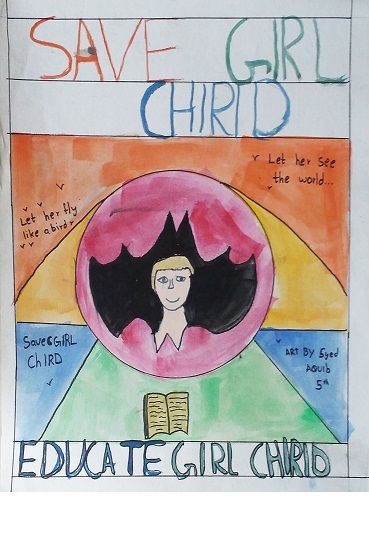 SAVE GIRL
CHIRlD
Let her see
the world...
Let her fly
like a bird
Save GIRL
ChIRD
ART BY Syed
AQUIB
5th
EDUCATE GIRL CHIRID